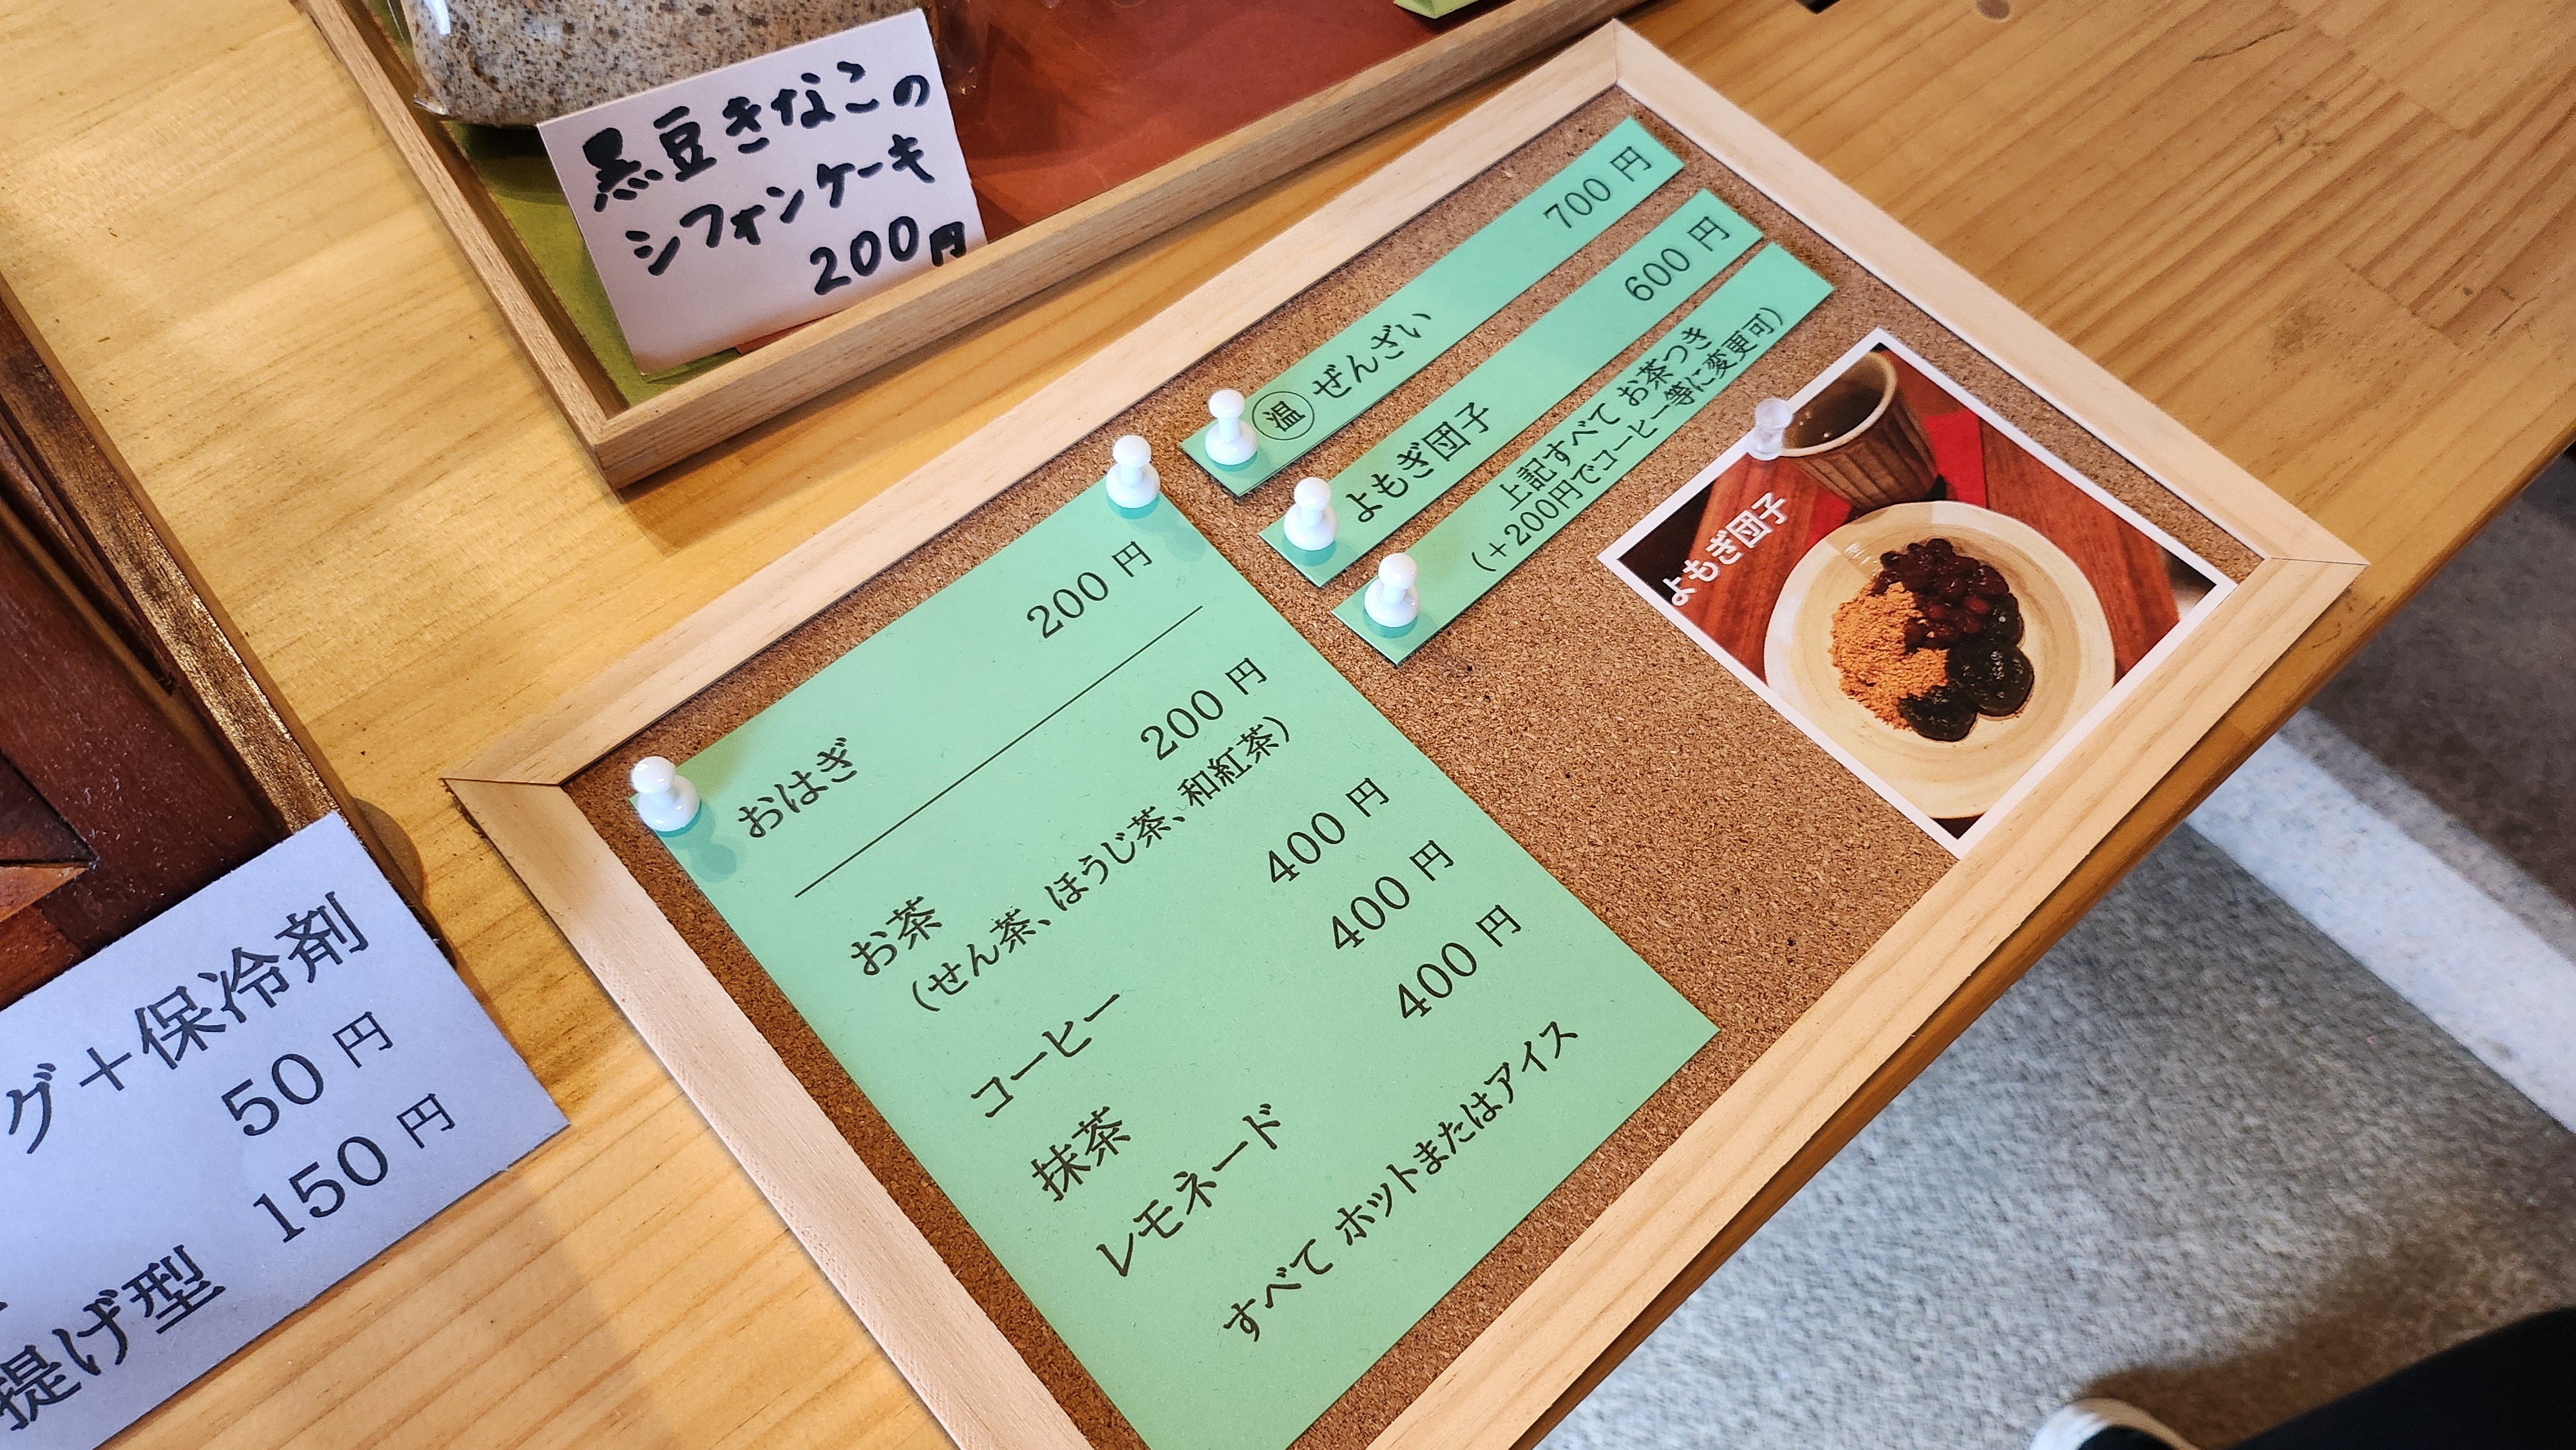 黒豆きなこの
シフォンケーキ
200円
温 ぜんざい 700 円
よもぎ団子 600 円
上記すべて お茶つき
(+200円でコーヒー等に変更可)
よもぎ団子
おはぎ 200 円
お茶 200 円
(せん茶、ほうじ茶、和紅茶)
コーヒー 400 円
抹茶 400 円
レモネード 400 円
すべて ホットまたはアイス
グ+保冷剤
50 円
150 円
提げ型